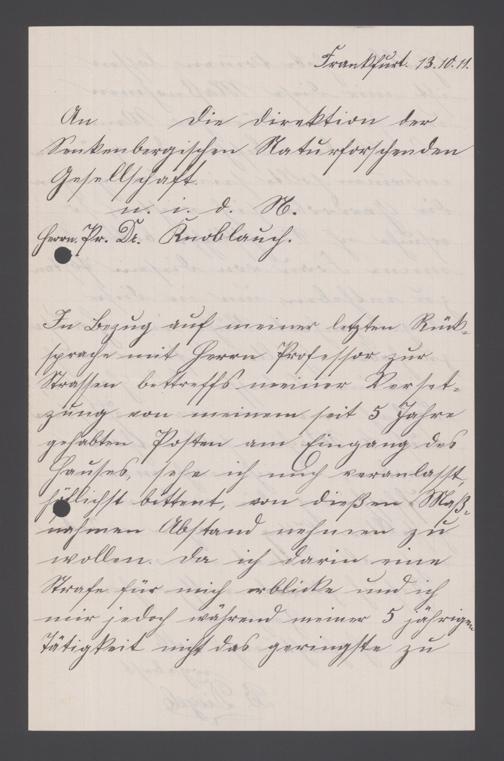 Frankfurt. 13.10.11.
An Die Direktion der
Senkenbergischen Naturforschenden
Gesellschaft
u. i. d. N.
Herrn. Pr. Dr. Knoblauch.
In Bezug auf meiner letzten Rück-
sprache mit Herrn Professor zur
Strassen bettreffs meiner Verset-
zung von meinem seit 5 Jahre
gehabten Posten am Eingang des
Hauses, sehe ich mich veranlasst,
höflichst bittent, von dießen Maß-
nahmen Abstand nehmen zu
wollen. Da ich darin eine
Strafe für mich erblicke und ich
mir jedoch während meiner 5 jährigen
Tätigkeit nicht das geringste zu